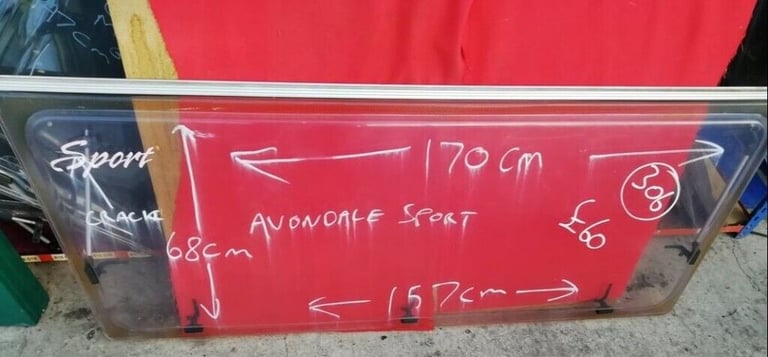 Sport
170 cm
306
CRACK
AVONDALE SPORT
£60
68cm
157cm